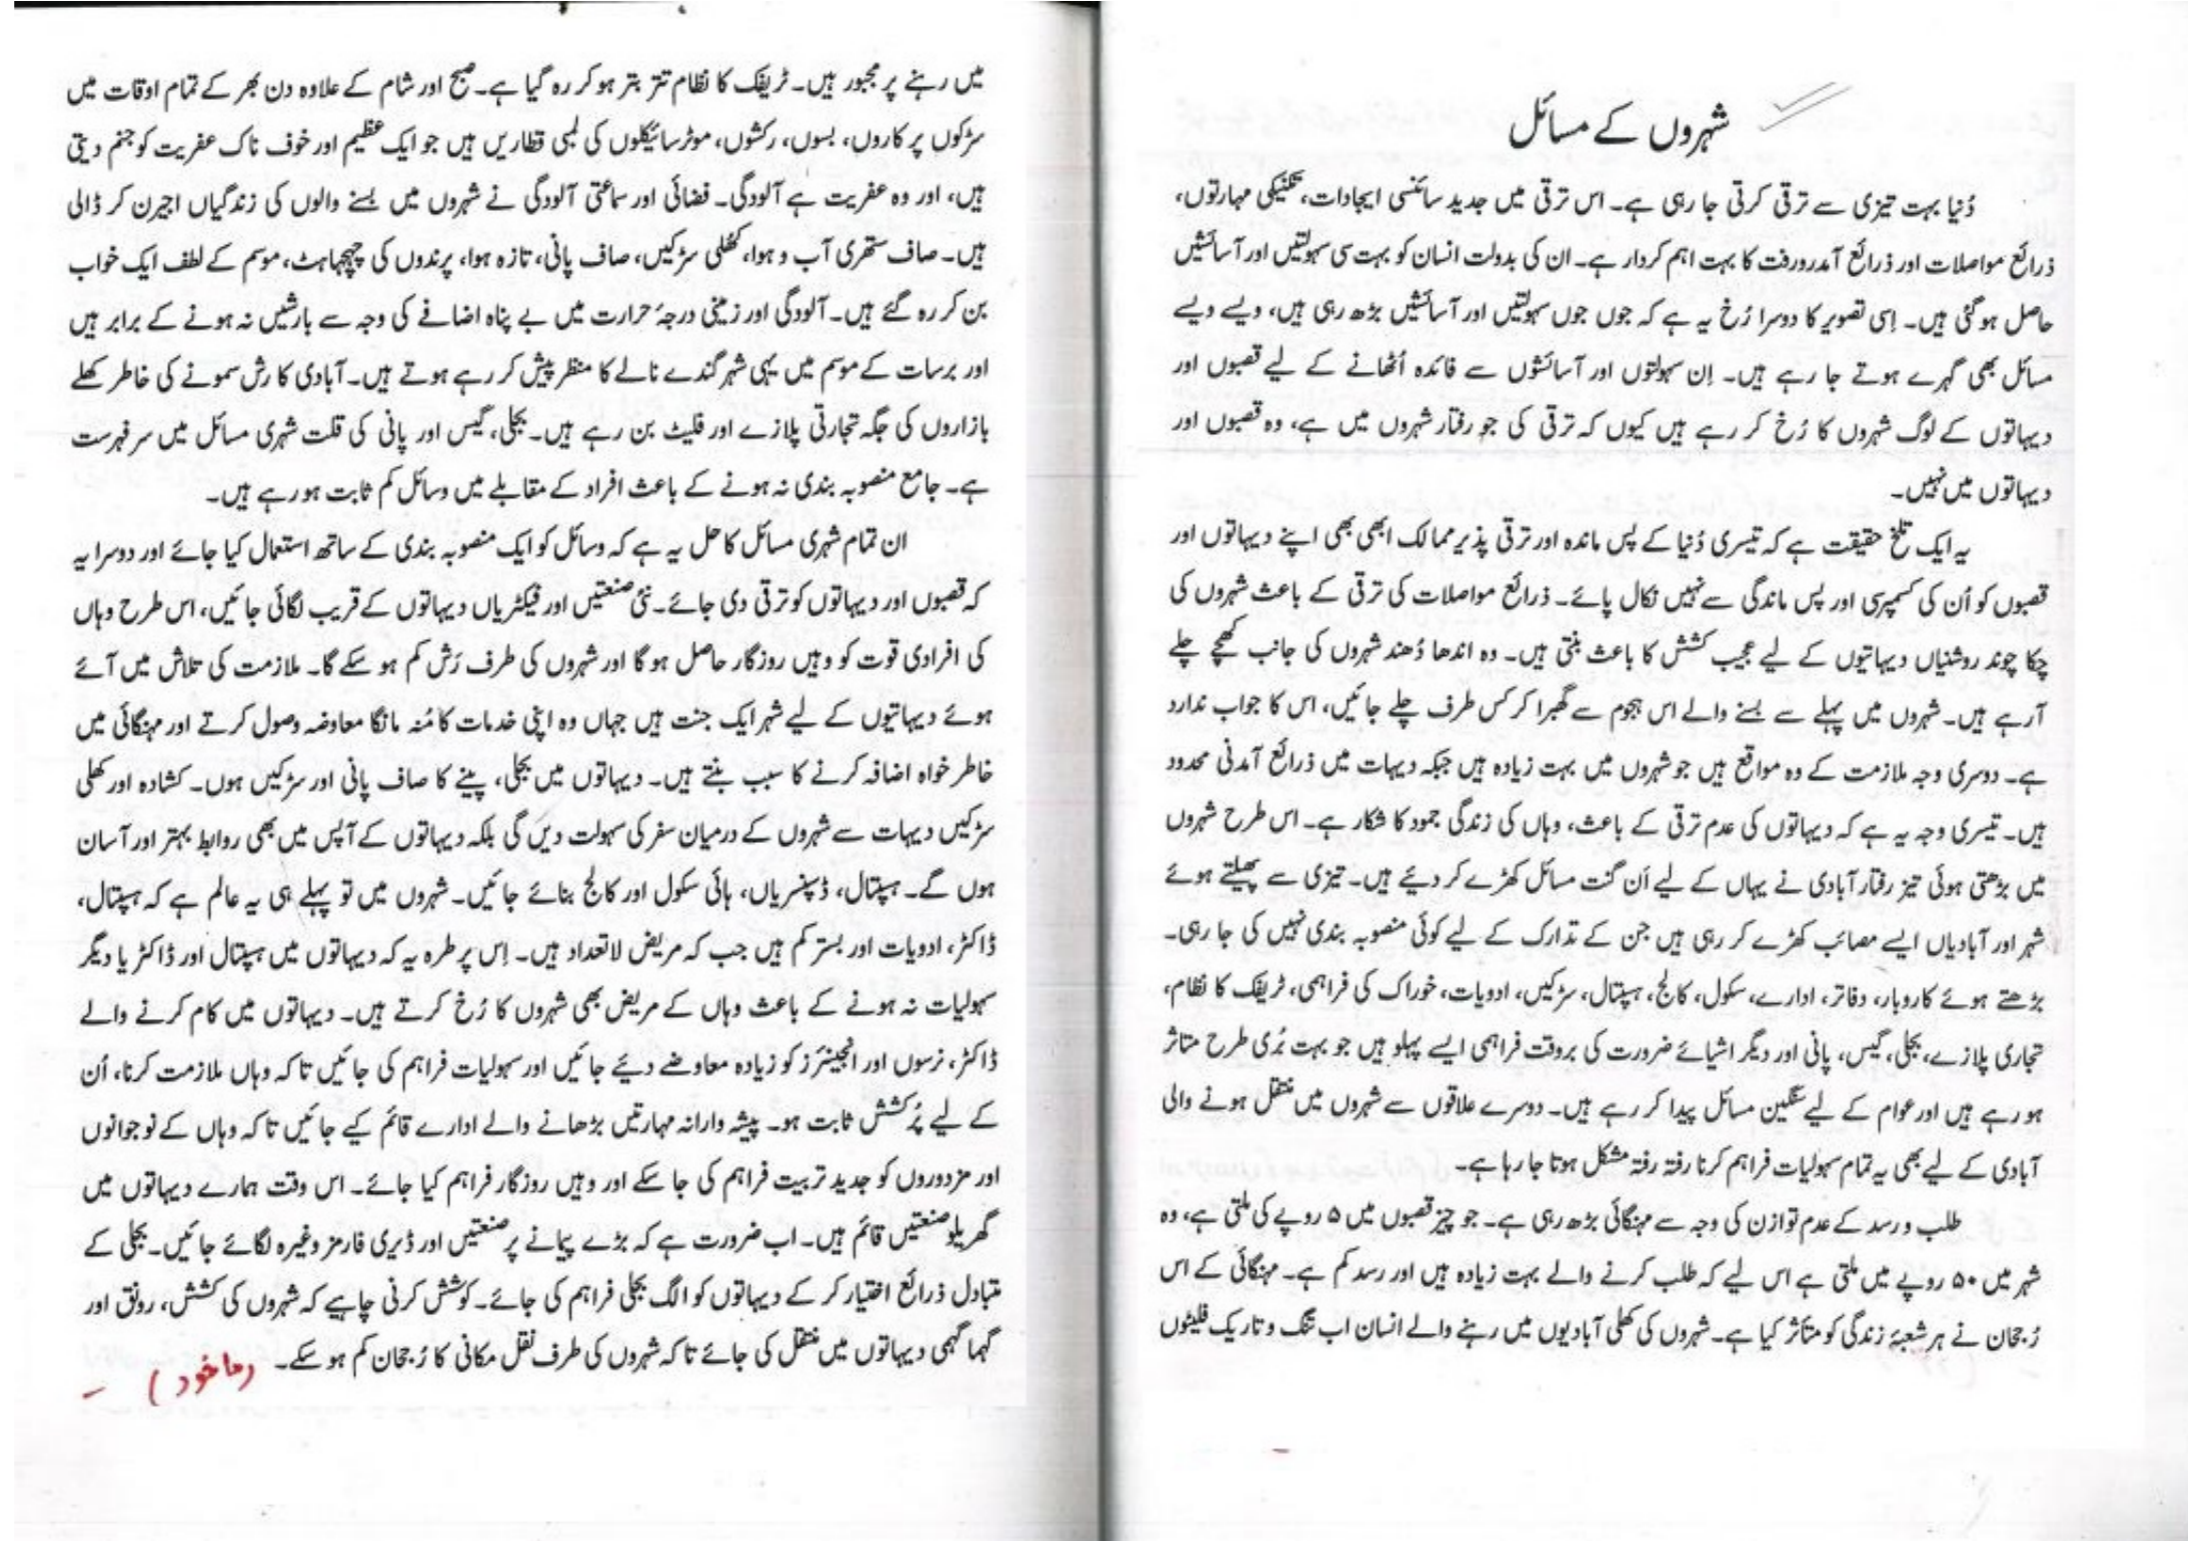 شہروں کے مسائل
دُنیا بہت تیزی سے ترقی کرتی جا رہی ہے۔ اس ترقی میں جدید سائنسی ایجادات، تکنیکی مہارتوں،
ذرائع مواصلات اور ذرائع آمدورفت کا بہت اہم کردار ہے۔ ان کی بدولت انسان کو بہت سی سہولتیں اور آسائشیں
حاصل ہو گئی ہیں۔ اِسی تصویر کا دوسرا رُخ یہ ہے کہ جوں جوں سہولتیں اور آسائشیں بڑھ رہی ہیں، ویسے ویسے
مسائل بھی گہرے ہوتے جا رہے ہیں۔ اِن سہولتوں اور آسائشوں سے فائدہ اُٹھانے کے لیے قصبوں اور
دیہاتوں کے لوگ شہروں کا رُخ کر رہے ہیں کیوں کہ ترقی کی جو رفتار شہروں میں ہے، وہ قصبوں اور
دیہاتوں میں نہیں۔
یہ ایک تلخ حقیقت ہے کہ تیسری دُنیا کے پس ماندہ اور ترقی پذیر ممالک ابھی بھی اپنے دیہاتوں اور
قصبوں کو اُن کی کسمپرسی اور پس ماندگی سے نہیں نکال پائے۔ ذرائع مواصلات کی ترقی کے باعث شہروں کی
چکا چوند روشنیاں دیہاتیوں کے لیے عجیب کشش کا باعث بنتی ہیں۔ وہ اندھا دُھند شہروں کی جانب کھچے چلے
آرہے ہیں۔ شہروں میں پہلے سے بسنے والے اس ہجوم سے گھبرا کر کس طرف چلے جائیں، اس کا جواب ندارد
ہے۔ دوسری وجہ ملازمت کے وہ مواقع ہیں جو شہروں میں بہت زیادہ ہیں جبکہ دیہات میں ذرائع آمدنی محدود
ہیں۔ تیسری وجہ یہ ہے کہ دیہاتوں کی عدم ترقی کے باعث، وہاں کی زندگی جمود کا شکار ہے۔ اس طرح شہروں
میں بڑھتی ہوئی تیز رفتار آبادی نے یہاں کے لیے اَن گنت مسائل کھڑے کر دیئے ہیں۔ تیزی سے پھیلتے ہوئے
شہر اور آبادیاں ایسے مصائب کھڑے کر رہی ہیں جن کے تدارک کے لیے کوئی منصوبہ بندی نہیں کی جا رہی۔
بڑھتے ہوئے کاروبار، دفاتر، ادارے، سکول، کالج، ہسپتال، سڑکیں، ادویات، خوراک کی فراہمی، ٹریفک کا نظام،
تجاری پلازے، بجلی، گیس، پانی اور دیگر اشیائے ضرورت کی بروقت فراہمی ایسے پہلو ہیں جو بہت بُری طرح متاثر
ہو رہے ہیں اور عوام کے لیے سنگین مسائل پیدا کر رہے ہیں۔ دوسرے علاقوں سے شہروں میں منتقل ہونے والی
آبادی کے لیے بھی یہ تمام سہولیات فراہم کرنا رفتہ رفتہ مشکل ہوتا جا رہا ہے۔
طلب و رسد کے عدم توازن کی وجہ سے مہنگائی بڑھ رہی ہے۔ جو چیز قصبوں میں ۵ روپے کی ملتی ہے، وہ
شہر میں ۵۰ روپے میں ملتی ہے اس لیے کہ طلب کرنے والے بہت زیادہ ہیں اور رسد کم ہے۔ مہنگائی کے اس
رُجحان نے ہر شعبۂ زندگی کو متأثر کیا ہے۔ شہروں کی کھلی آبادیوں میں رہنے والے انسان اب تنگ و تاریک فلیٹوں
میں رہنے پر مجبور ہیں۔ ٹریفک کا نظام تتر بتر ہو کر رہ گیا ہے۔ صبح اور شام کے علاوہ دن بھر کے تمام اوقات میں
سڑکوں پر کاروں، بسوں، رکشوں، موٹر سائیکلوں کی لمبی قطاریں ہیں جو ایک عظیم اور خوف ناک عفریت کو جنم دیتی
ہیں، اور وہ عفریت ہے آلودگی۔ فضائی اور سماعتی آلودگی نے شہروں میں بسنے والوں کی زندگیاں اجیرن کر ڈالی
ہیں۔ صاف ستھری آب و ہوا، کُھلی سڑکیں، صاف پانی، تازہ ہوا، پرندوں کی چہچہاہٹ، موسم کے لطف ایک خواب
بن کر رہ گئے ہیں۔ آلودگی اور زمینی درجۂ حرارت میں بے پناہ اضافے کی وجہ سے بارشیں نہ ہونے کے برابر ہیں
اور برسات کے موسم میں یہی شہر گندے نالے کا منظر پیش کر رہے ہوتے ہیں۔ آبادی کا رش سمونے کی خاطر کھلے
بازاروں کی جگہ تجارتی پلازے اور فلیٹ بن رہے ہیں۔ بجلی، گیس اور پانی کی قلت شہری مسائل میں سرفہرست
ہے۔ جامع منصوبہ بندی نہ ہونے کے باعث افراد کے مقابلے میں وسائل کم ثابت ہو رہے ہیں۔
ان تمام شہری مسائل کا حل یہ ہے کہ وسائل کو ایک منصوبہ بندی کے ساتھ استعمال کیا جائے اور دوسرا یہ
کہ قصبوں اور دیہاتوں کو ترقی دی جائے۔ نئی صنعتیں اور فیکٹریاں دیہاتوں کے قریب لگائی جائیں، اس طرح وہاں
کی افرادی قوت کو وہیں روزگار حاصل ہو گا اور شہروں کی طرف رَش کم ہو سکے گا۔ ملازمت کی تلاش میں آئے
ہوئے دیہاتیوں کے لیے شہر ایک جنت ہیں جہاں وہ اپنی خدمات کا مُنہ مانگا معاوضہ وصول کرتے اور مہنگائی میں
خاطر خواہ اضافہ کرنے کا سبب بنتے ہیں۔ دیہاتوں میں بجلی، پینے کا صاف پانی اور سڑکیں ہوں۔ کشادہ اور کھلی
سڑکیں دیہات سے شہروں کے درمیان سفر کی سہولت دیں گی بلکہ دیہاتوں کے آپس میں بھی روابط بہتر اور آسان
ہوں گے۔ ہسپتال، ڈسپنسریاں، ہائی سکول اور کالج بنائے جائیں۔ شہروں میں تو پہلے ہی یہ عالم ہے کہ ہسپتال،
ڈاکٹر، ادویات اور بستر کم ہیں جب کہ مریض لاتعداد ہیں۔ اِس پر طرہ یہ کہ دیہاتوں میں ہسپتال اور ڈاکٹر یا دیگر
سہولیات نہ ہونے کے باعث وہاں کے مریض بھی شہروں کا رُخ کرتے ہیں۔ دیہاتوں میں کام کرنے والے
ڈاکٹر، نرسوں اور انجینئرز کو زیادہ معاوضے دیئے جائیں اور سہولیات فراہم کی جائیں تاکہ وہاں ملازمت کرنا، اُن
کے لیے پُرکشش ثابت ہو۔ پیشہ وارانہ مہارتیں بڑھانے والے ادارے قائم کیے جائیں تاکہ وہاں کے نوجوانوں
اور مزدوروں کو جدید تربیت فراہم کی جا سکے اور وہیں روزگار فراہم کیا جائے۔ اس وقت ہمارے دیہاتوں میں
گھریلو صنعتیں قائم ہیں۔ اب ضرورت ہے کہ بڑے پیمانے پر صنعتیں اور ڈیری فارمز وغیرہ لگائے جائیں۔ بجلی کے
متبادل ذرائع اختیار کر کے دیہاتوں کو الگ بجلی فراہم کی جائے۔ کوشش کرنی چاہیے کہ شہروں کی کشش، رونق اور
گہما گہمی دیہاتوں میں منتقل کی جائے تاکہ شہروں کی طرف نقل مکانی کا رُجحان کم ہو سکے۔ (ماخود) ۔